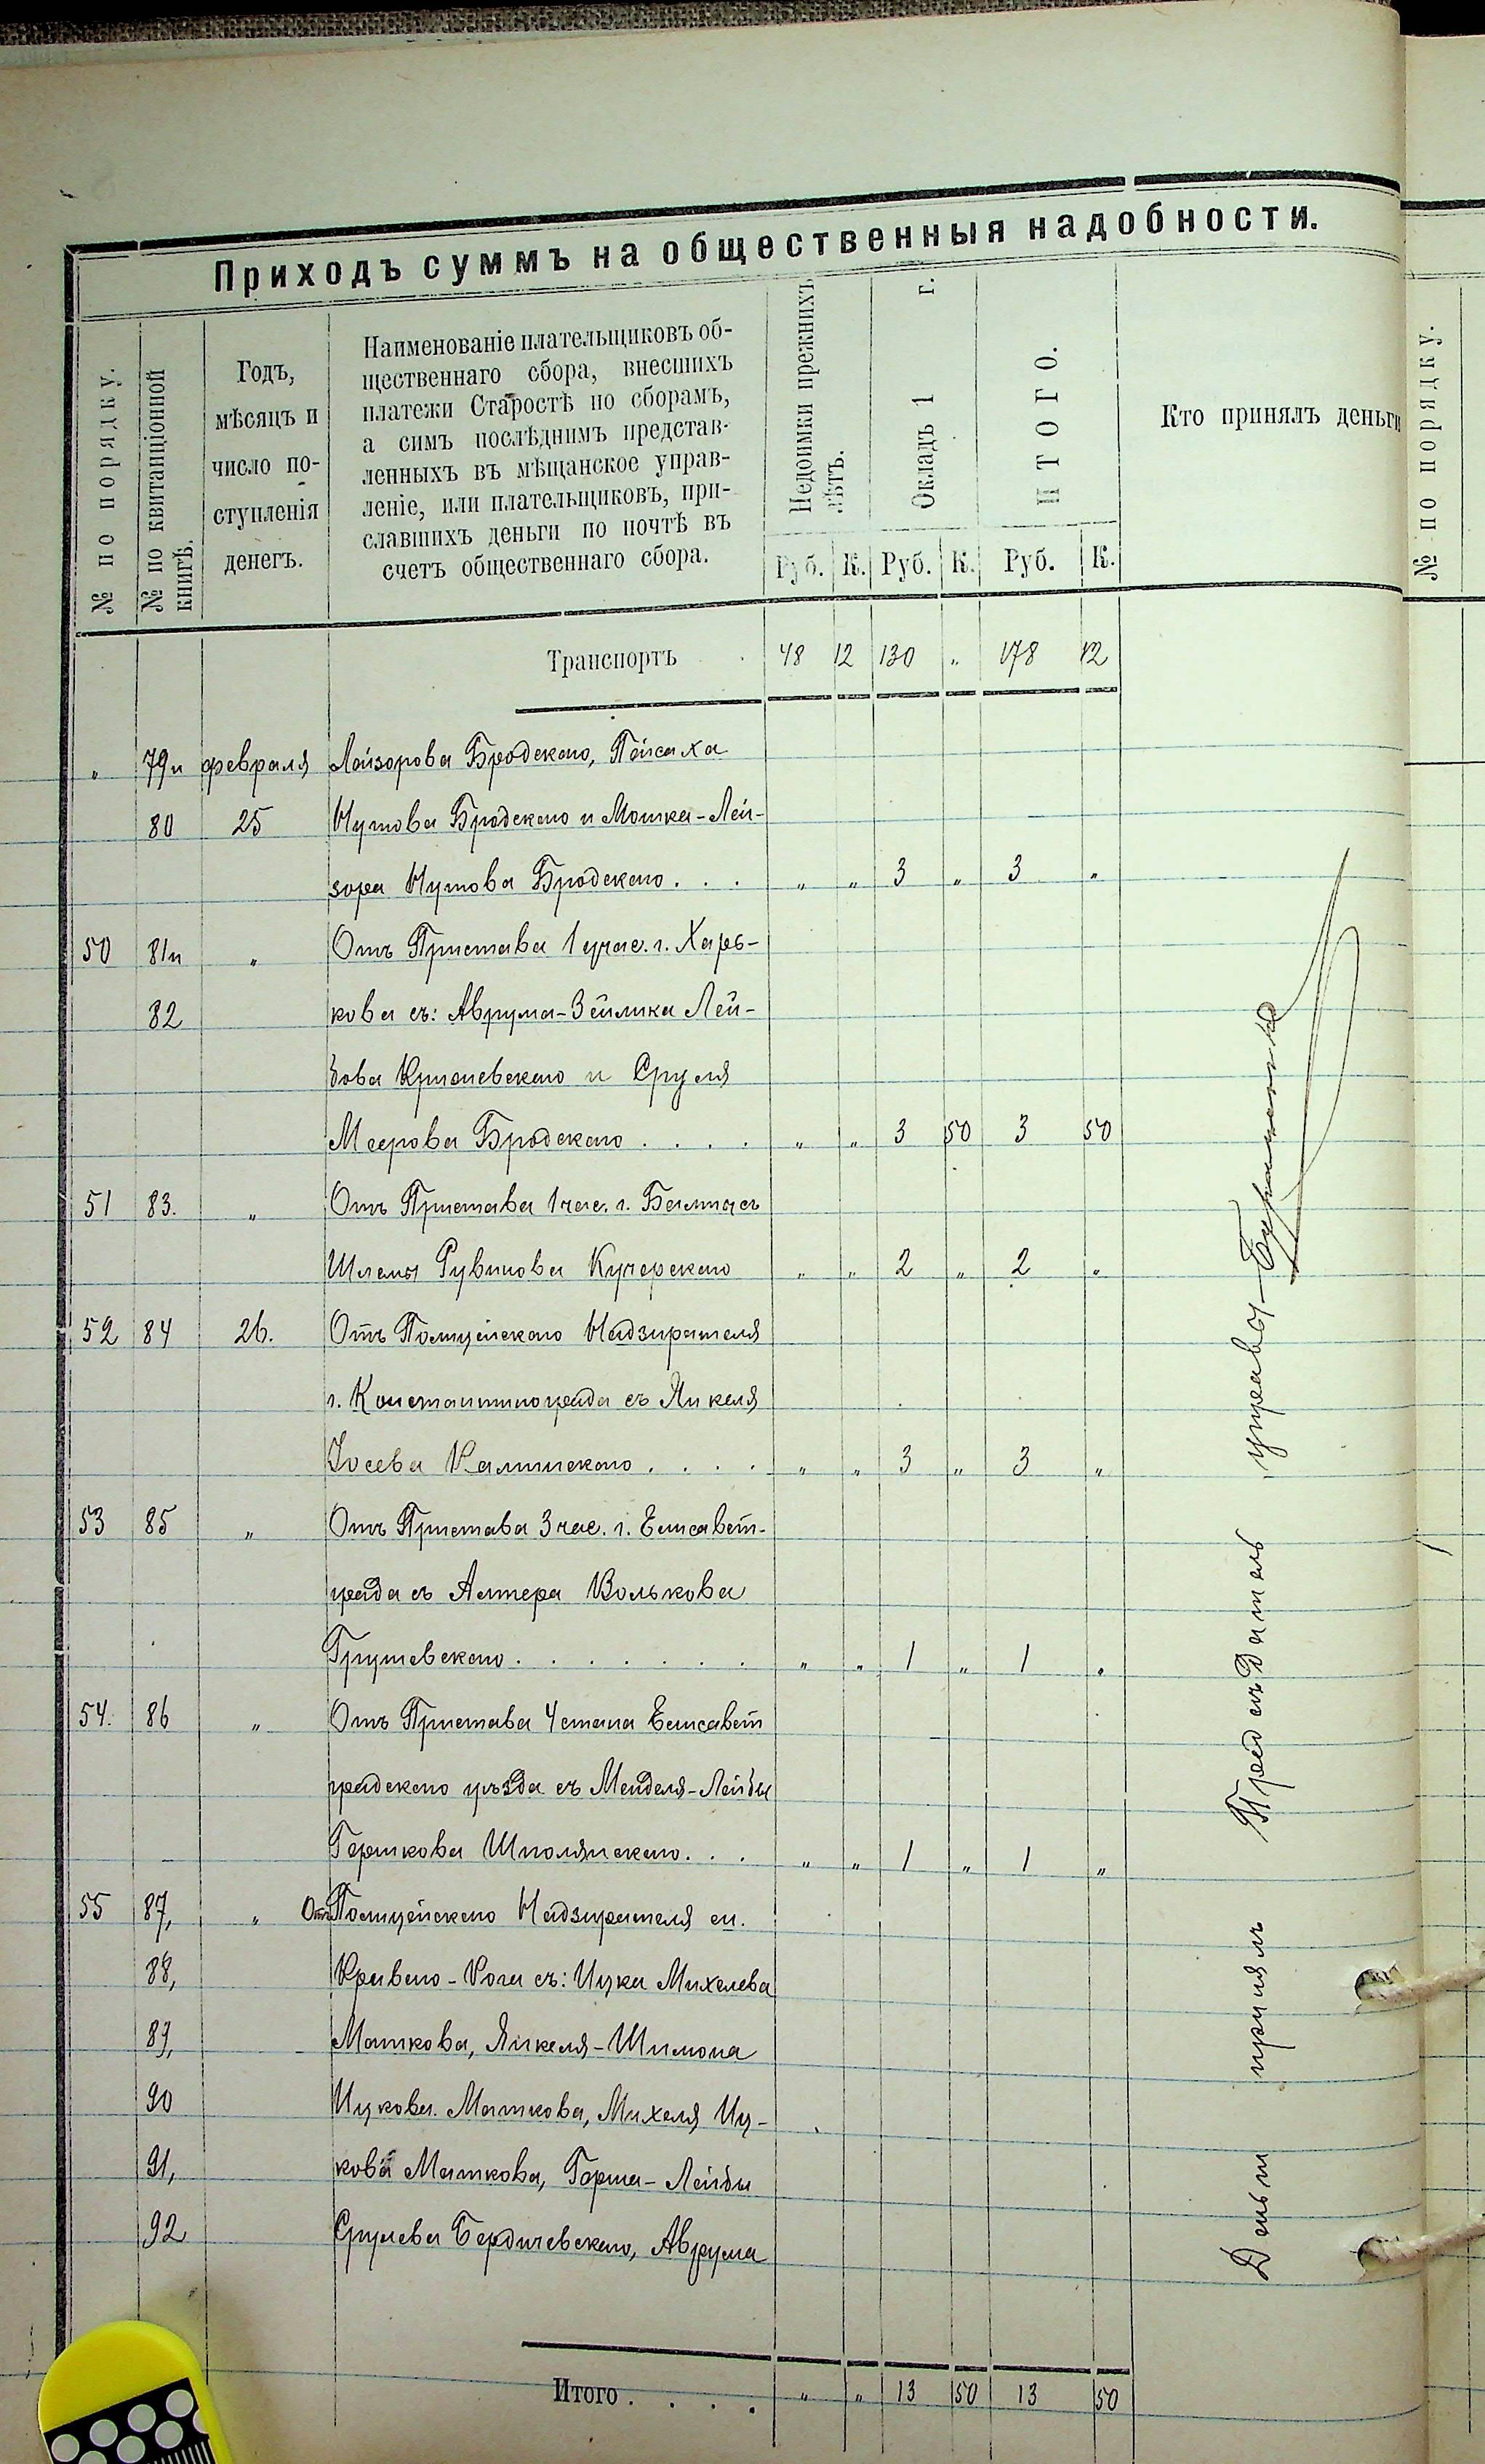 Приходъ суммъ на общественныя надобности.
№ по порядку.
№ по квитанціонной книгѣ.
Годъ, мѣсяцъ и число поступленія денегъ.
Наименованіе плательщиковъ об-
щественнаго сбора, внесшихъ
платежи Старостѣ по сборамъ,
а симъ послѣднимъ представ-
ленныхъ въ мѣщанское управ-
леніе, или плательщиковъ, при-
славшихъ деньги по почтѣ въ
счетъ общественнаго сбора.
Недоимки прежнихъ лѣтъ.
Окладъ 1 г.
ИТОГО.
Кто принялъ деньги
Руб. К. Руб. К. Руб. К.
Транспортъ 48 12 130 „ 178 12
„ 79 и февраля Лейзорова Бродскаго, Пейсаха
80 25 Нутова Бродскаго и Мошка-Лей-
зора Нутова Бродскаго . . . „ „ 3 „ 3 „
50 81 и „ Отъ Пристава 1 учас. г. Харь-
82 кова съ: Аврума-Зейлика Лей-
бова Крюневскаго и Сруля
Меерова Бродскаго . . . . „ „ 3 50 3 50
51 83. „ Отъ Пристава 1 час. г. Балты съ
Шлемы Рувинова Кучерскаго „ „ 2 „ 2 „
52 84 26. Отъ Полицейскаго Надзирателя
г. Константинограда съ Янкеля
Іосева Калининскаго . . . . „ „ 3 „ 3 „
53 85 „ Отъ Пристава 3 час. г. Елисавет-
града съ Алтера Волькова
Грушевскаго . . . . . . . „ „ 1 „ 1 „
54. 86 „ Отъ Пристава 4 стана Елисавет
градскаго уѣзда съ Менделя-Лейбы
Гершкова Шполянскаго . . . „ „ 1 „ 1 „
55 87, „ Отъ Полицейскаго Надзирателя
88, Кривого-Рога съ: Ицка Михелева
89, Маткова, Янкеля-Шимона
90 Ицкова Маткова, Михеля Иц-
91, кова Маткова, Герша-Лейбы
92 Срулева Бердичевскаго, Аврума
Итого . . . . „ „ 13 50 13 50
Деньги принялъ Предсѣдатель управы
№ по порядку.